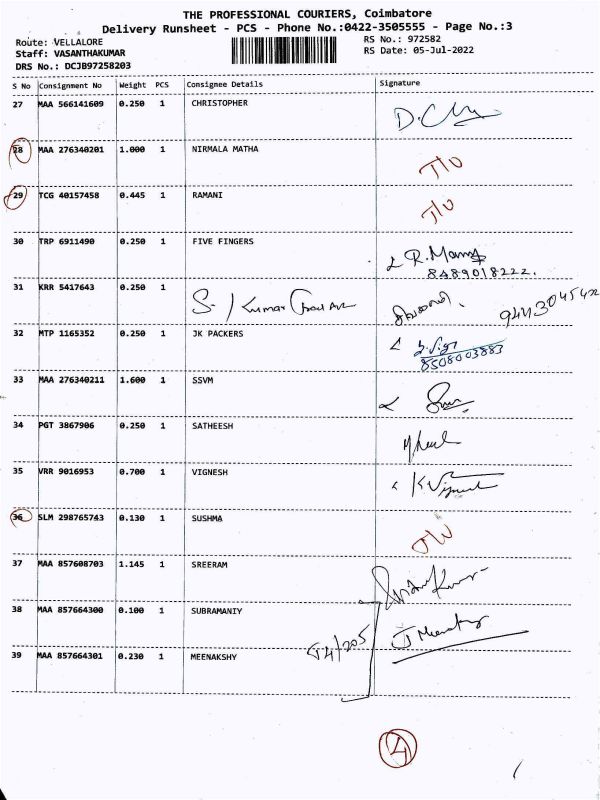 THE PROFESSIONAL COURIERS, Coimbatore
Delivery Runsheet - PCS - Phone No.:0422-3505555 - Page No.:3
Route: VELLALORE RS No.: 972582
Staff: VASANTHAKUMAR RS Date: 05-Jul-2022
DRS No.: DCJB97258203
S No Consignment No Weight PCS Consignee Details Signature
27 MAA 566141609 0.250 1 CHRISTOPHER
28 MAA 276340201 1.000 1 NIRMALA MATHA
29 TCG 40157458 0.445 1 RAMANI
30 TRP 6911490 0.250 1 FIVE FINGERS
8489018222.
31 KRR 5417643 0.250 1 S. Kumar
32 MTP 1165352 0.250 1 JK PACKERS
8508003883
33 MAA 276340211 1.600 1 SSVM
34 PGT 3867906 0.250 1 SATHEESH
35 VRR 9016953 0.700 1 VIGNESH K Vignesh
36 SLM 298765743 0.130 1 SUSHMA
37 MAA 857608703 1.145 1 SREERAM
38 MAA 857664300 0.100 1 SUBRAMANIY
39 MAA 857664301 0.230 1 MEENAKSHY
4